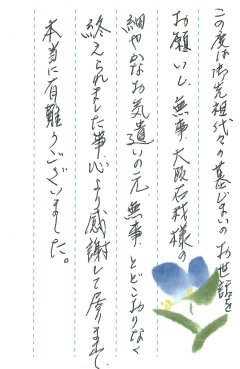 この度は御先祖代々の墓じまいのお世話を
お願いし、無事、大阪石材様の
細やかなお気遣いの元、無事、とどこおりなく
終えられました事、心より感謝して居ります。
本当に有難うございました。